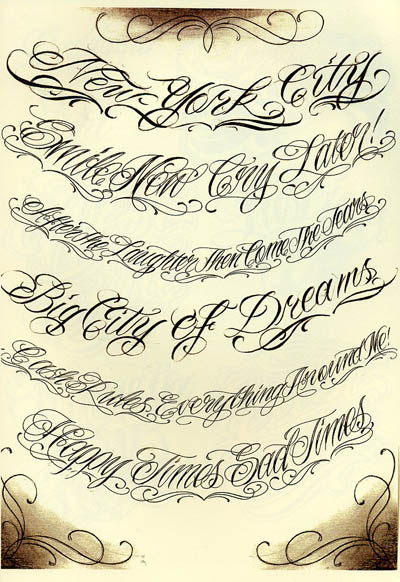 New York City
Smile Now Cry Later!
After The Laughter Then Come The Tears
Big City of Dreams
Cash Rules Everything Around Me!
Happy Times Sad Times